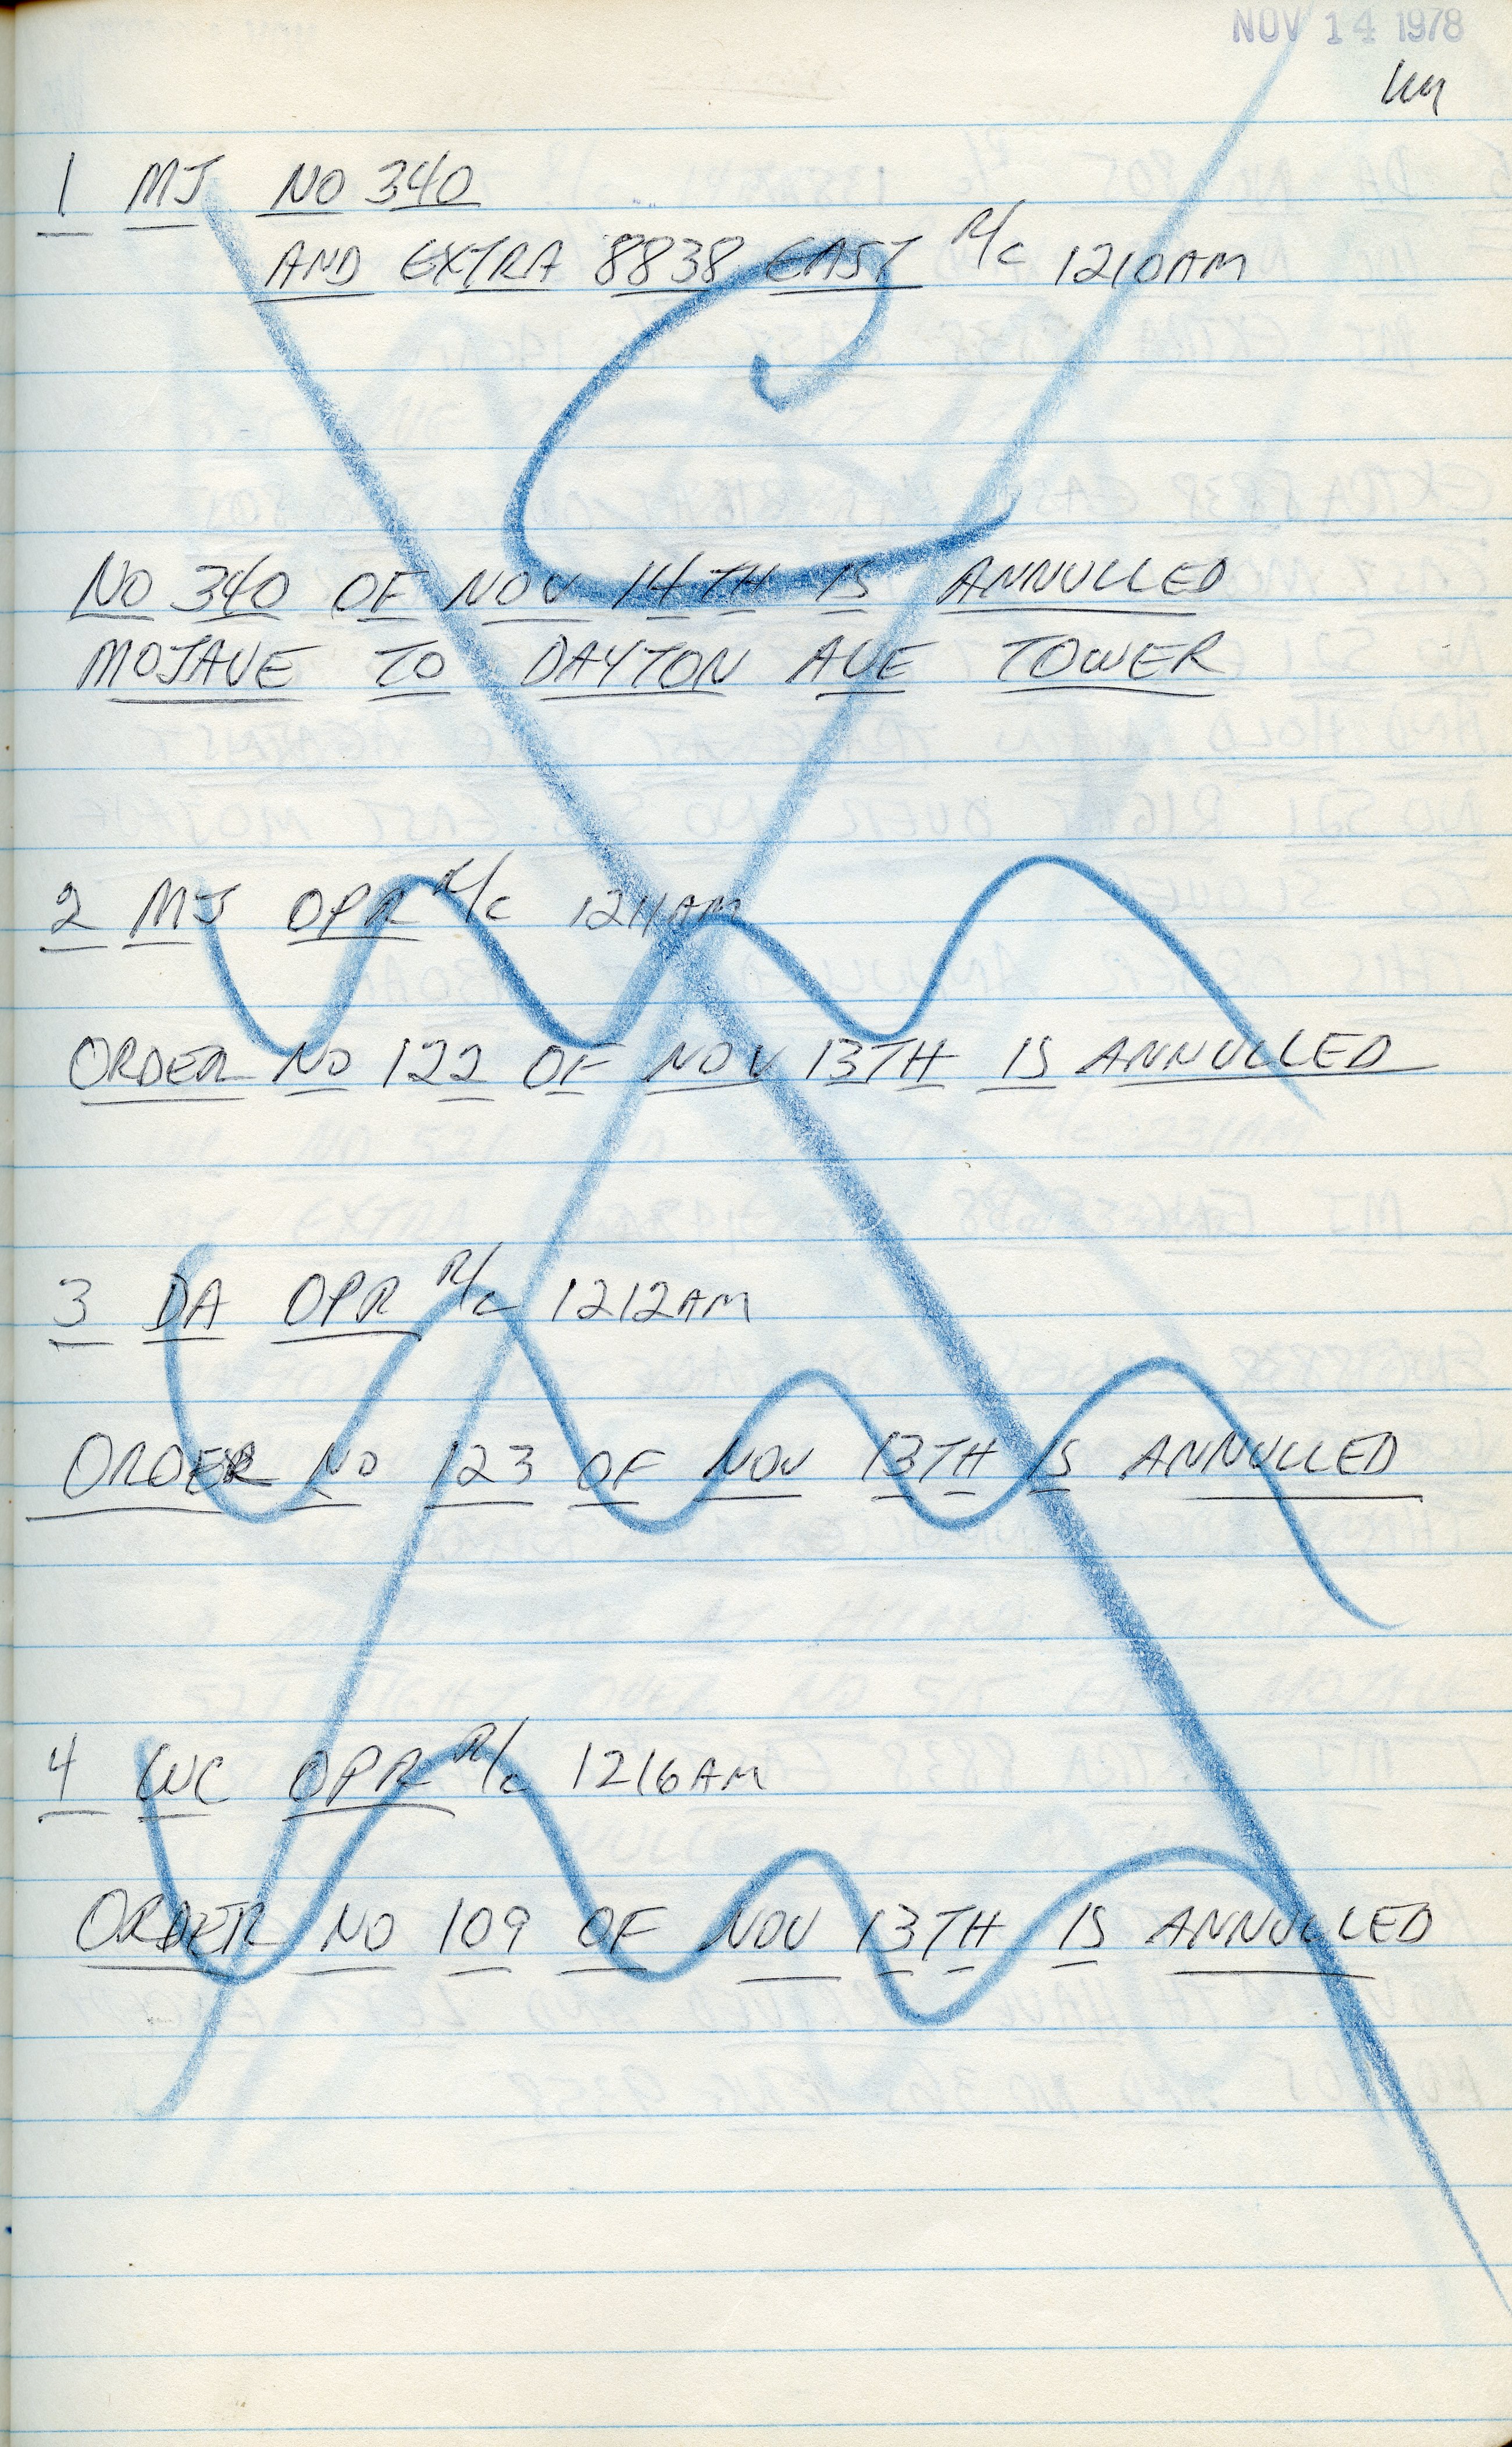 NOV 14 1978
1 MJ NO 340
AND EXTRA 8838 EAST R/C 1210AM
NO 340 OF NOV 14TH IS ANNULLED
MOJAVE TO DAYTON AVE TOWER
2 MJ OPR R/C 1211AM
ORDER NO 122 OF NOV 13TH IS ANNULLED
3 DA OPR R/C 1212AM
ORDER NO 123 OF NOV 13TH IS ANNULLED
4 WC OPR R/C 1216AM
ORDER NO 109 OF NOV 13TH IS ANNULLED